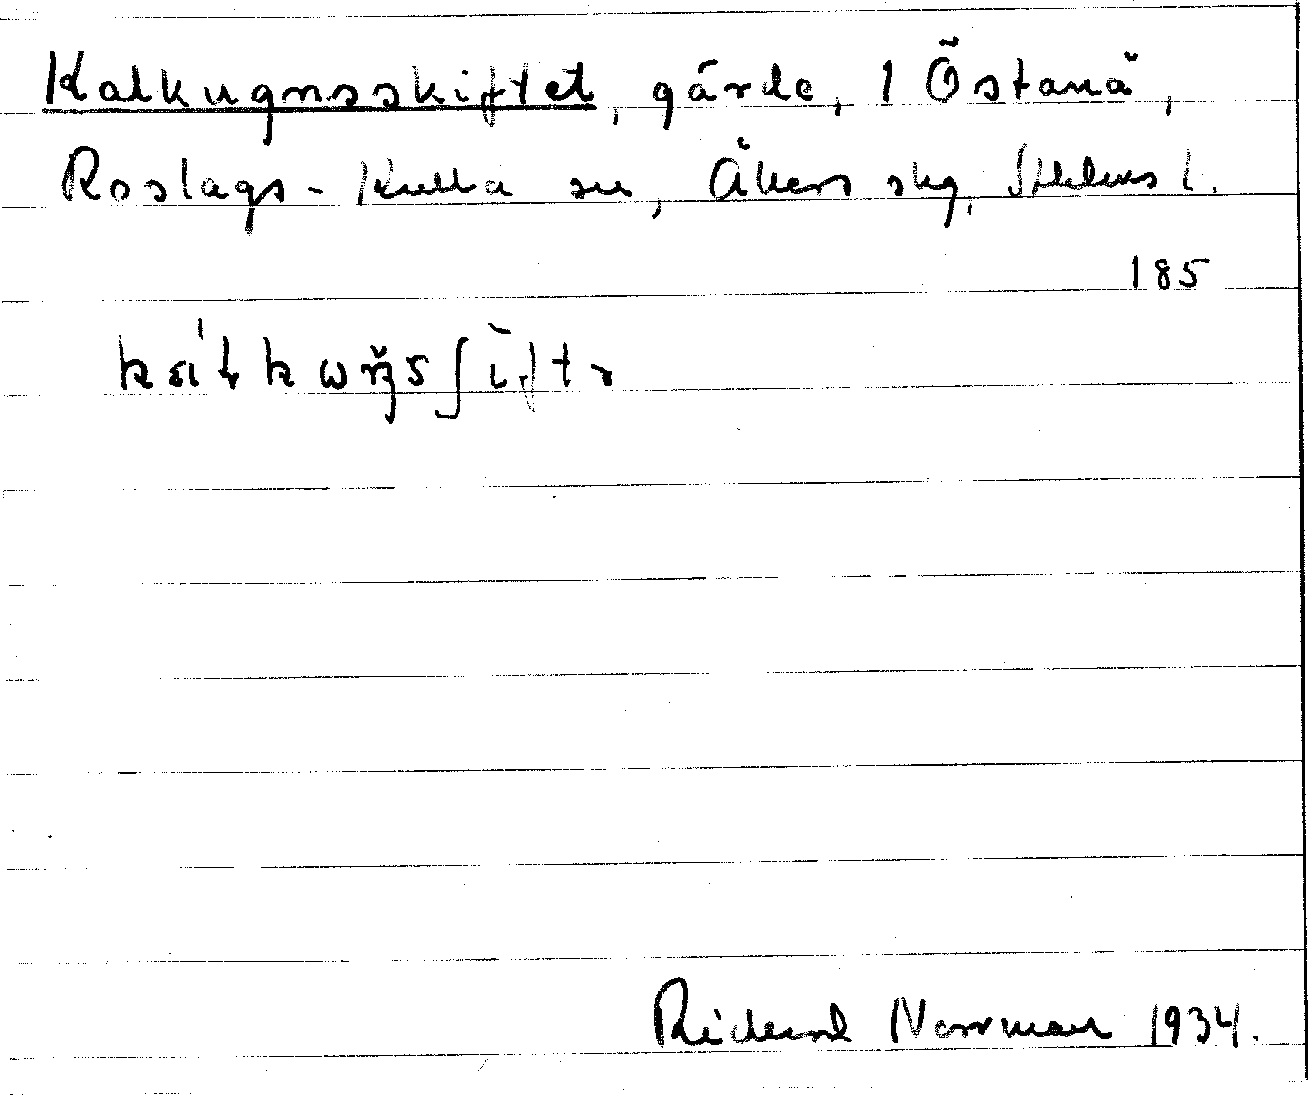 Kalkugnsskiftet, gärde, 1 Östanå,
Roslags-Kulla sn, Åkers skg, Sthlms l.
185
Rickard Norrman 1934.